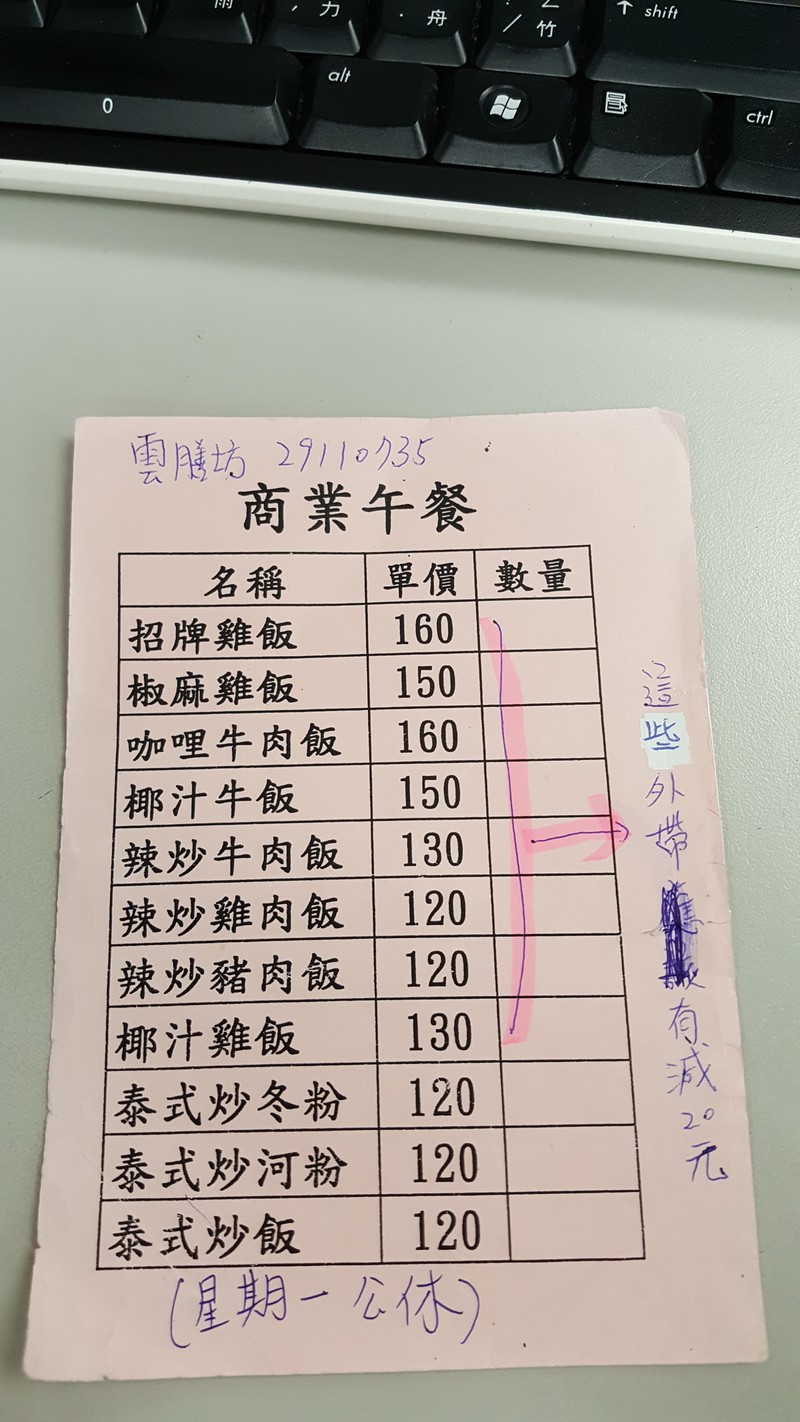 雨
, 力
. 舟
? ㄥ
/ 竹
↑ shift
0
alt
ctrl
雲膳坊 29110735
商業午餐
名稱 單價 數量
招牌雞飯 160
椒麻雞飯 150
咖哩牛肉飯 160
椰汁牛飯 150
辣炒牛肉飯 130
辣炒雞肉飯 120
辣炒豬肉飯 120
椰汁雞飯 130
泰式炒冬粉 120
泰式炒河粉 120
泰式炒飯 120
這些外帶有減20元
(星期一公休)